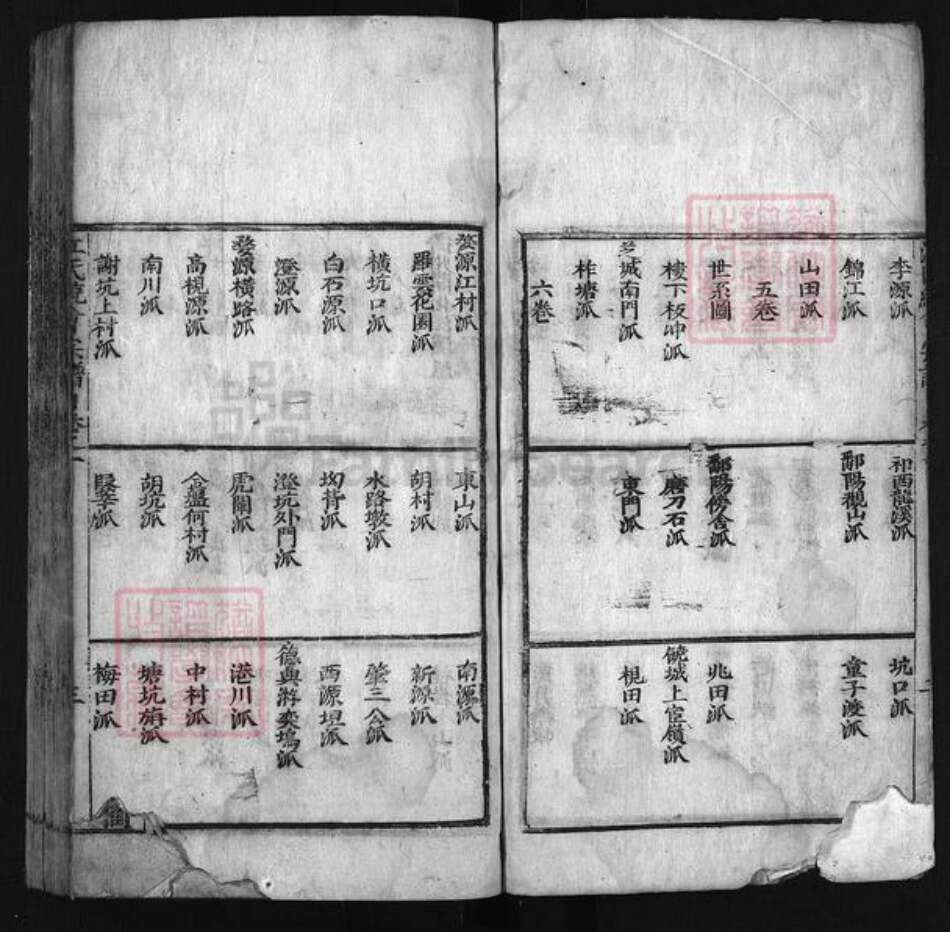 李源派
祁西龍溪派
坑口派
錦江派
鄱陽觀山派
童子渡派
山田派
五卷
世系圖
鄱陽傍舍派
兆田派
棱下板冲派
磨刀石派
饒城上宦嶺派
芝城南門派
東門派
梘田派
柞塘派
六卷
婺源江村派
東山派
南源派
羅雲花園派
胡村派
新源派
橫坑口派
水路墩派
肇三公派
白石源派
坳背派
西源垣派
澄源派
澄坑外門派
德興游奕塢派
婺源橫路派
虎闌派
港川派
高梘源派
金盤何村派
中村派
南川派
胡坑派
塘坑旃派
謝坑上村派
梅田派
三